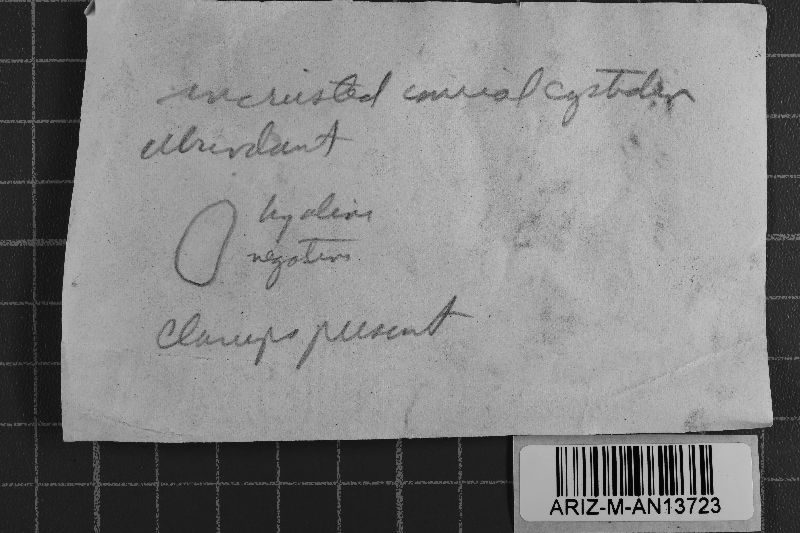 incrusted conical cystidia
abundant
hyaline
negative
clamps present
ARIZ-M-AN13723